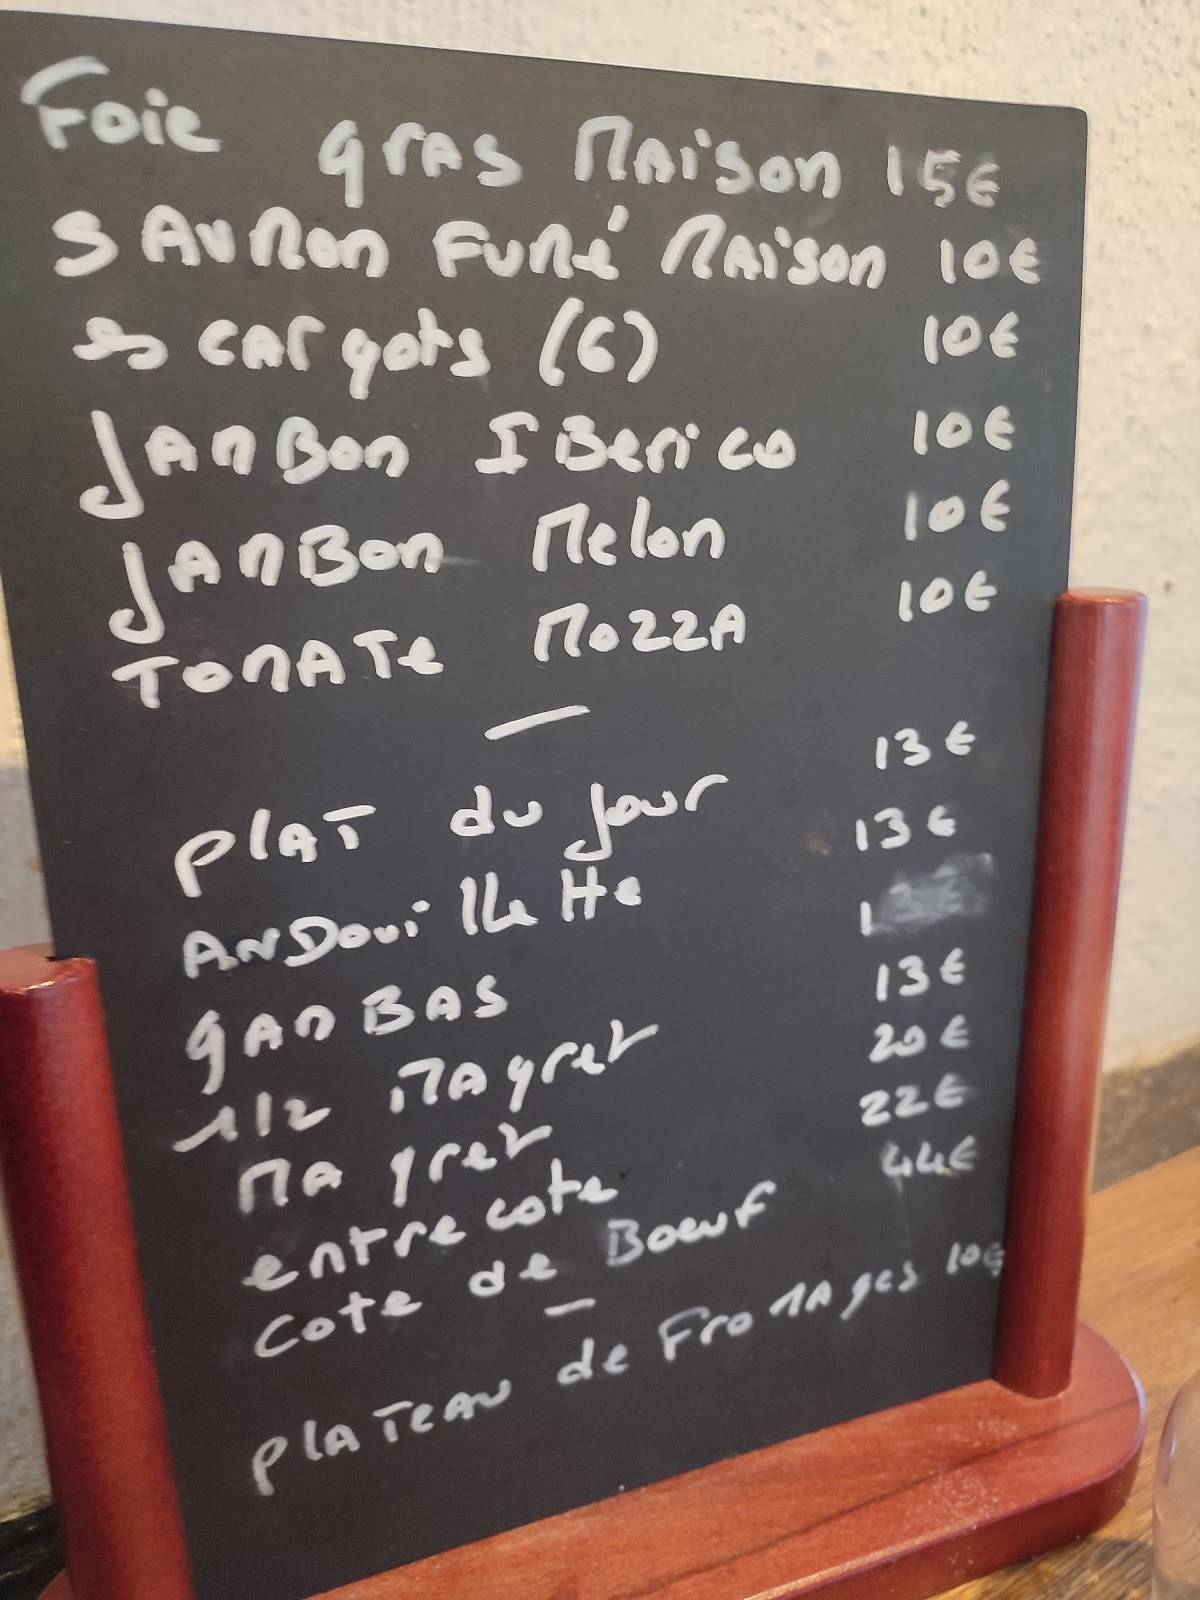 Foie gras Maison 15€
Saumon Fumé Maison 10€
escargots (6) 10€
Jambon Iberico 10€
Jambon Melon 10€
Tomate Mozza 10€
—
plat du jour 13€
Andouillette 13€
gambas 13€
1/2 Magret 13€
Magret 20€
entrecote 22€
cote de Boeuf 44€
—
plateau de Fromages 10€